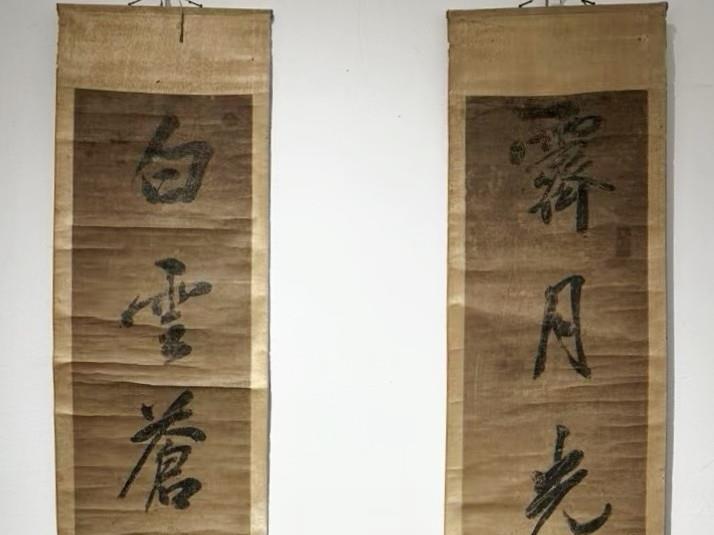 霽月光
白雲蒼